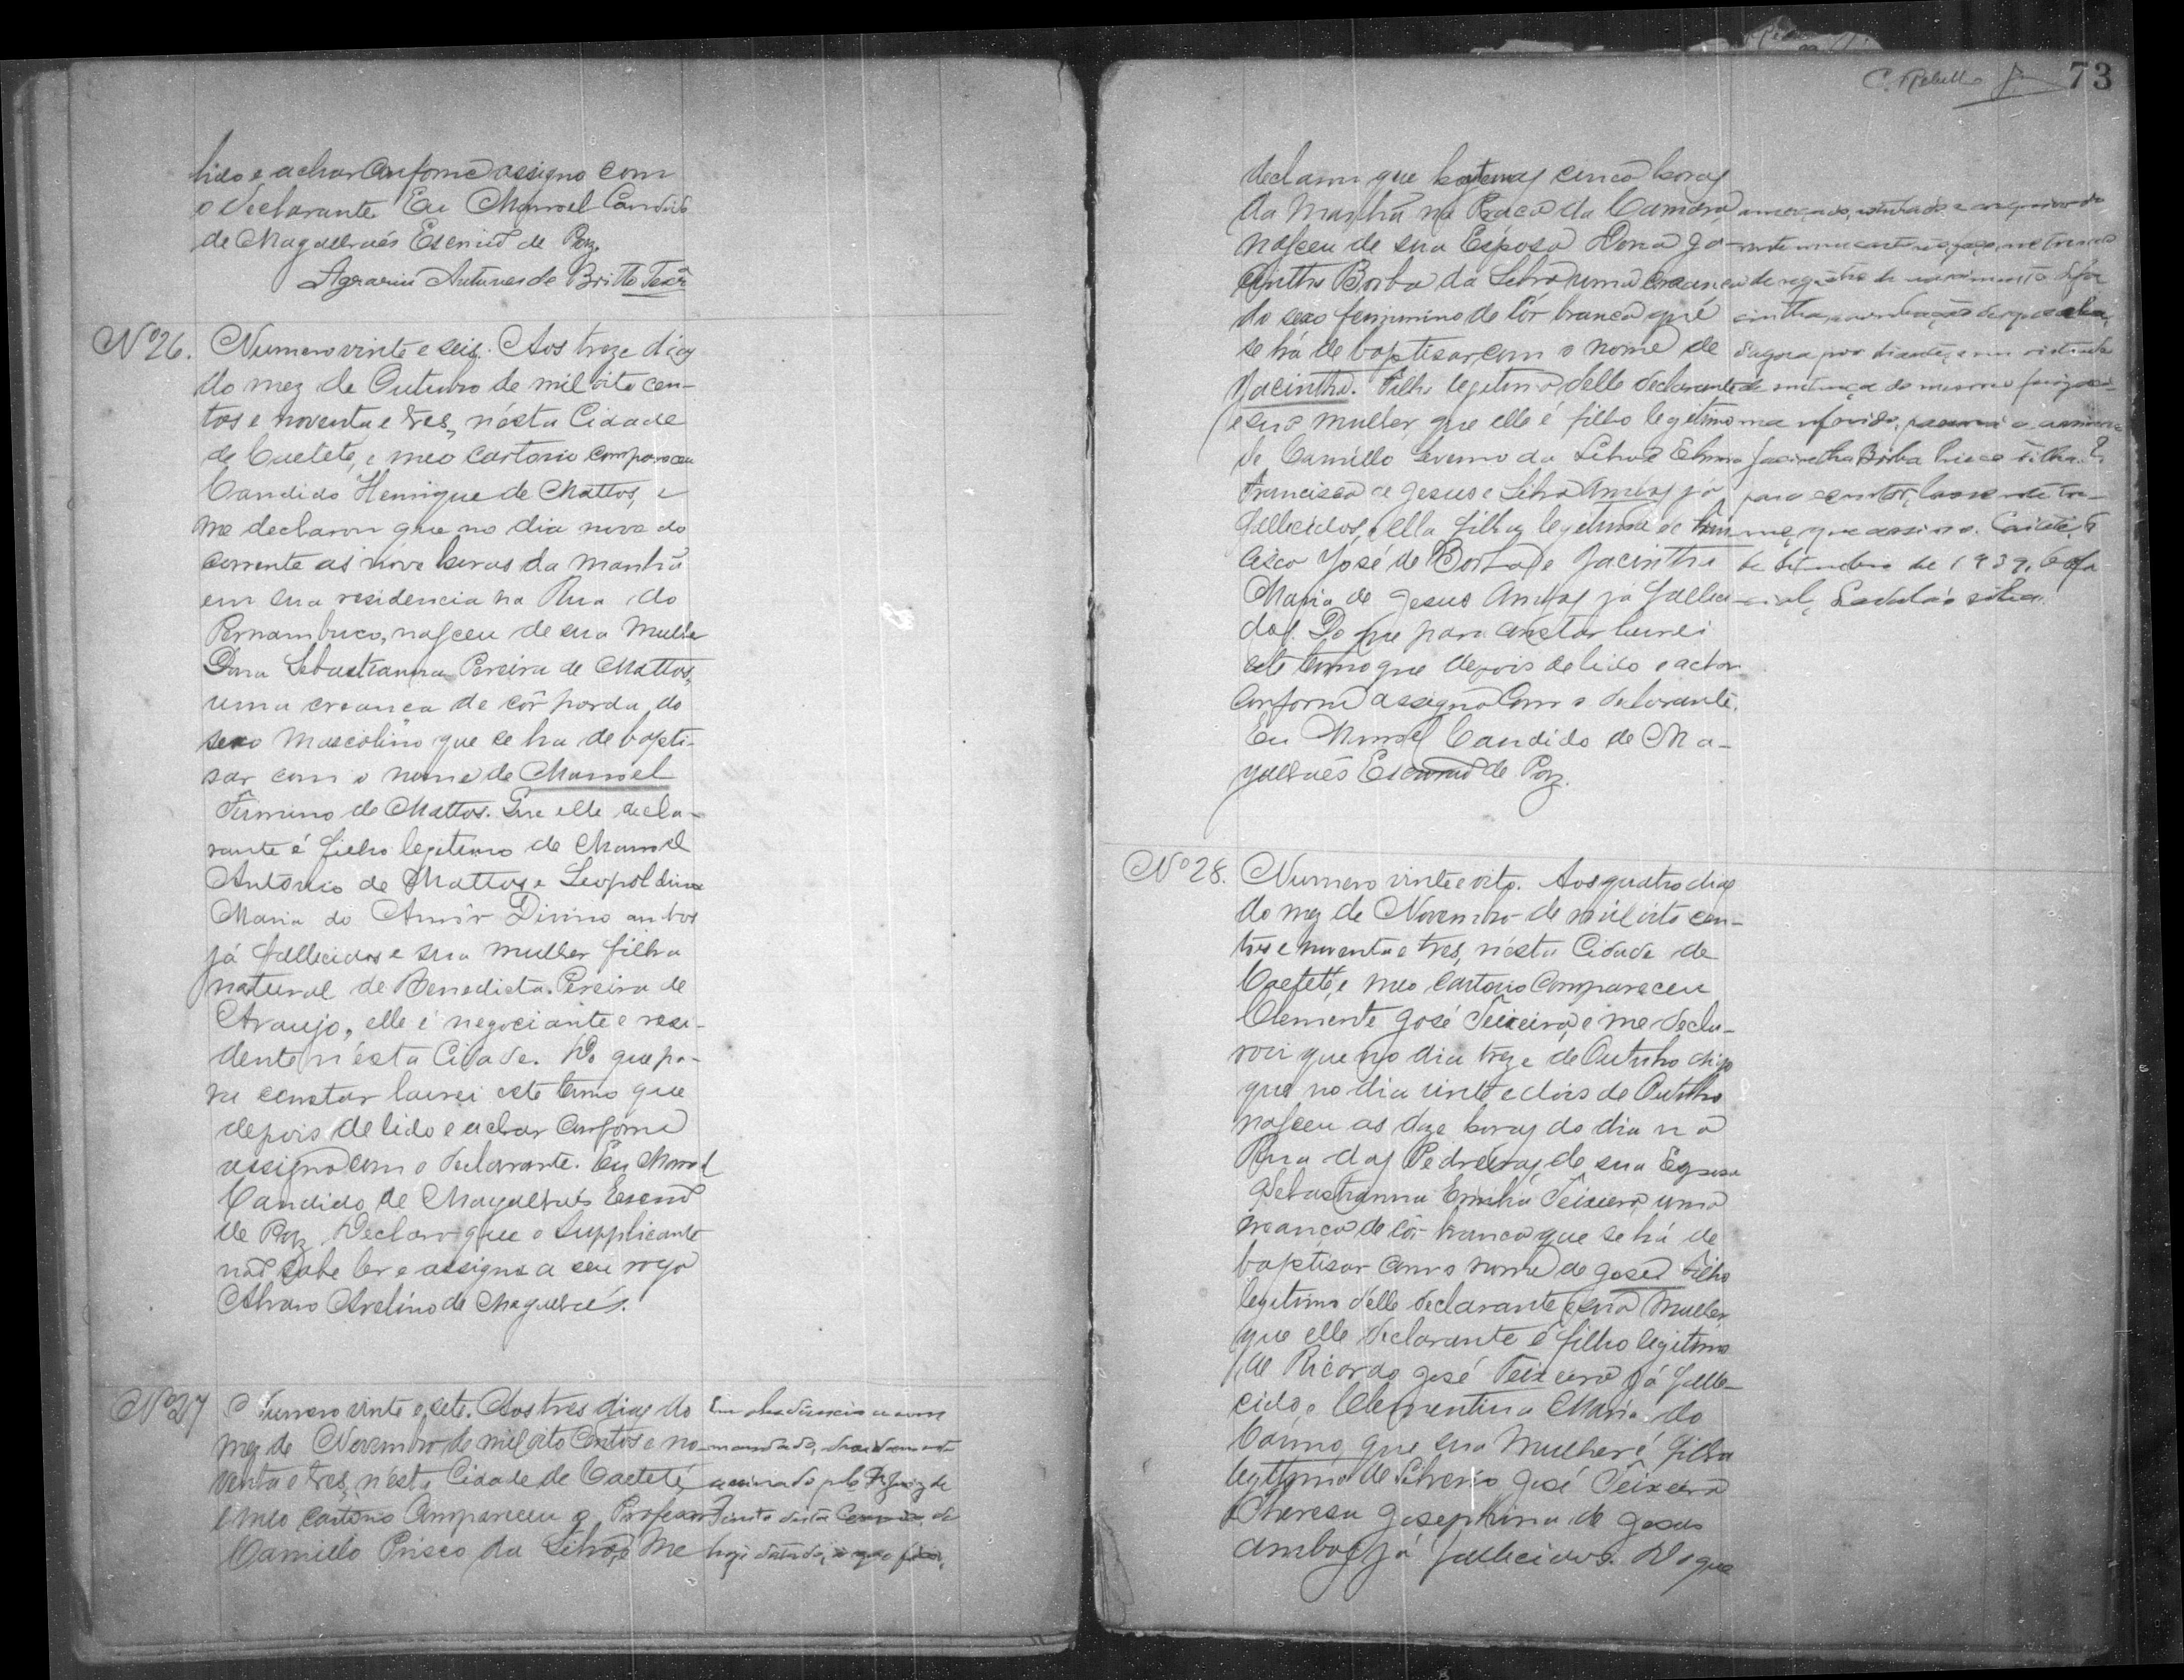 lido e achar conforme assigno com
o declarante Eu Manoel Candido
de Magalhaés Escrivã de Paz.
Antunes de Britto Teixª
Nº 26. Numero vinte e seis. Aos treze dias
do mez de Outubro de mil oito cen-
tos e noventa e tres, n'ésta Cidade
de Caeteté, e meo Cartorio compareceu
Candido Henrique de Mattos, e
me declarou que no dia nove do
corrente as nove horas da manhã
em sua residencia na Rua do
Pernambuco, nasceu de sua mulher
Dona Sebastianna Pereira de Mattos,
uma creanca de côr parda do
sexo Mascolino que se ha de bapti-
sar com o nome de Manoel
Firmino de Mattos. Que elle decla-
rante é filho legitimo de Manoel
Antonio de Mattos e Leopoldina
Maria do Amôr Divino ambos
já fallecidos e sua mulher filha
natural de Benedicta Pereira de
Araujo, elle é negociante e resi-
dente n'ésta Cidade. Do que pa-
ra constar lavrei este termo que
depois de lido e achar conforme
assigno com o declarante. Eu Manoel
Candido de Magalhaés Escrivã
de Paz Declaro que o Supplicante
não sabe ler e assigna a seu rogo
Alvaro Avelino de Magalhaés.
Nº 27 Numero vinte e sete. Aos tres dias do
mez de Novembro de mil oito centos e no-
venta e tres, n'ésta Cidade de Caeteté
e meo Cartorio Compareceu o Professor
Camillo Prisco da Silva, e me
Em obediencia a um
mandado, devidamente
assinado pelo Dr Juiz de
Direito desta Comarca, de
hoje datado, e que fica,
C. Rebello 73
declarou que hontem as cinco horas
da Manhã na Praca da Camara
nasceu de sua Esposa Dona Ja-
cintha Borba da Silva uma creanca
do sexo feminino de côr branca que
se há de baptisar com o nome de
Jacintha. Filha legitima delle declarante
e sua mulher, que elle é filho legitimo
de Camillo da Silva e
Francisca de Jesus e Silva Ambos já
fallecidos, e ella filha legitima de Fran
cisco José de Borba e Jacintha
Maria de Jesus Ambos já falleci
dos. Do que para constar lavrei
este termo que depois de lido e achar
conforme assigno com o declarante.
Eu Manoel Candido de Ma-
galhaés Escrivã de Paz.
de registro de nascimento de Ja
cintha, a averbação de que ela,
dagora por diante, e em virtude
de sentença do mesmo juiz
Jacintha Borba Prisco Silva. E
para constar, lavrei este ter
mo, que assino. Caiteté, 6
de Setembro de 1939. O ofi
cial,
Nº 28. Numero vinte e oito. Aos quatro dias
do mez de Novembro de mil oito cen-
tos e noventa e tres, n'ésta Cidade de
Caeteté, e meo Cartorio Compareceu
Clemente José Teixeira, e me decla-
rou que no dia treze de Outubro digo
que no dia vinte e dois de Outubro
nasceu as doze horas do dia na
Rua das Pedreiras, de sua Esposa
Sebastianna Emilia Teixeira uma
creança de côr branca que se há de
baptisar com o nome de José filho
legitimo delle declarante e sua Mulher
que elle declarante é filho legitimo
de Ricardo José Teixeira já falle-
cido e Clementina Maria do
Carmo, que sua Mulher é filha
legitima de Silverio José Teixeira
e Theresa Josephina de Jesus
ambos já fallecidos. Do que